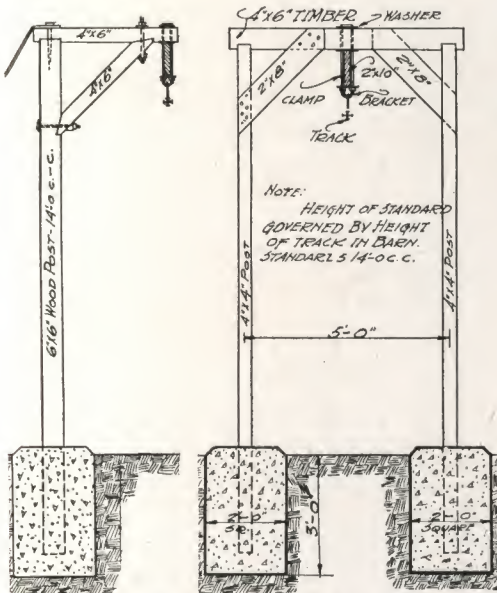 4"x6"
4"x6"
6"x6" WOOD POST - 14'-0 C.-C.
4"x6" TIMBER
WASHER
2"x8"
2"x8"
2"x10"
CLAMP
BRACKET
TRACK
NOTE:
HEIGHT OF STANDARD
GOVERNED BY HEIGHT
OF TRACK IN BARN.
STANDARLS 14'-0 C.C.
4"x4" POST
4"x4" POST
5'-0"
2'-0"
SQ.
3'-0"
2'-0"
SQUARE